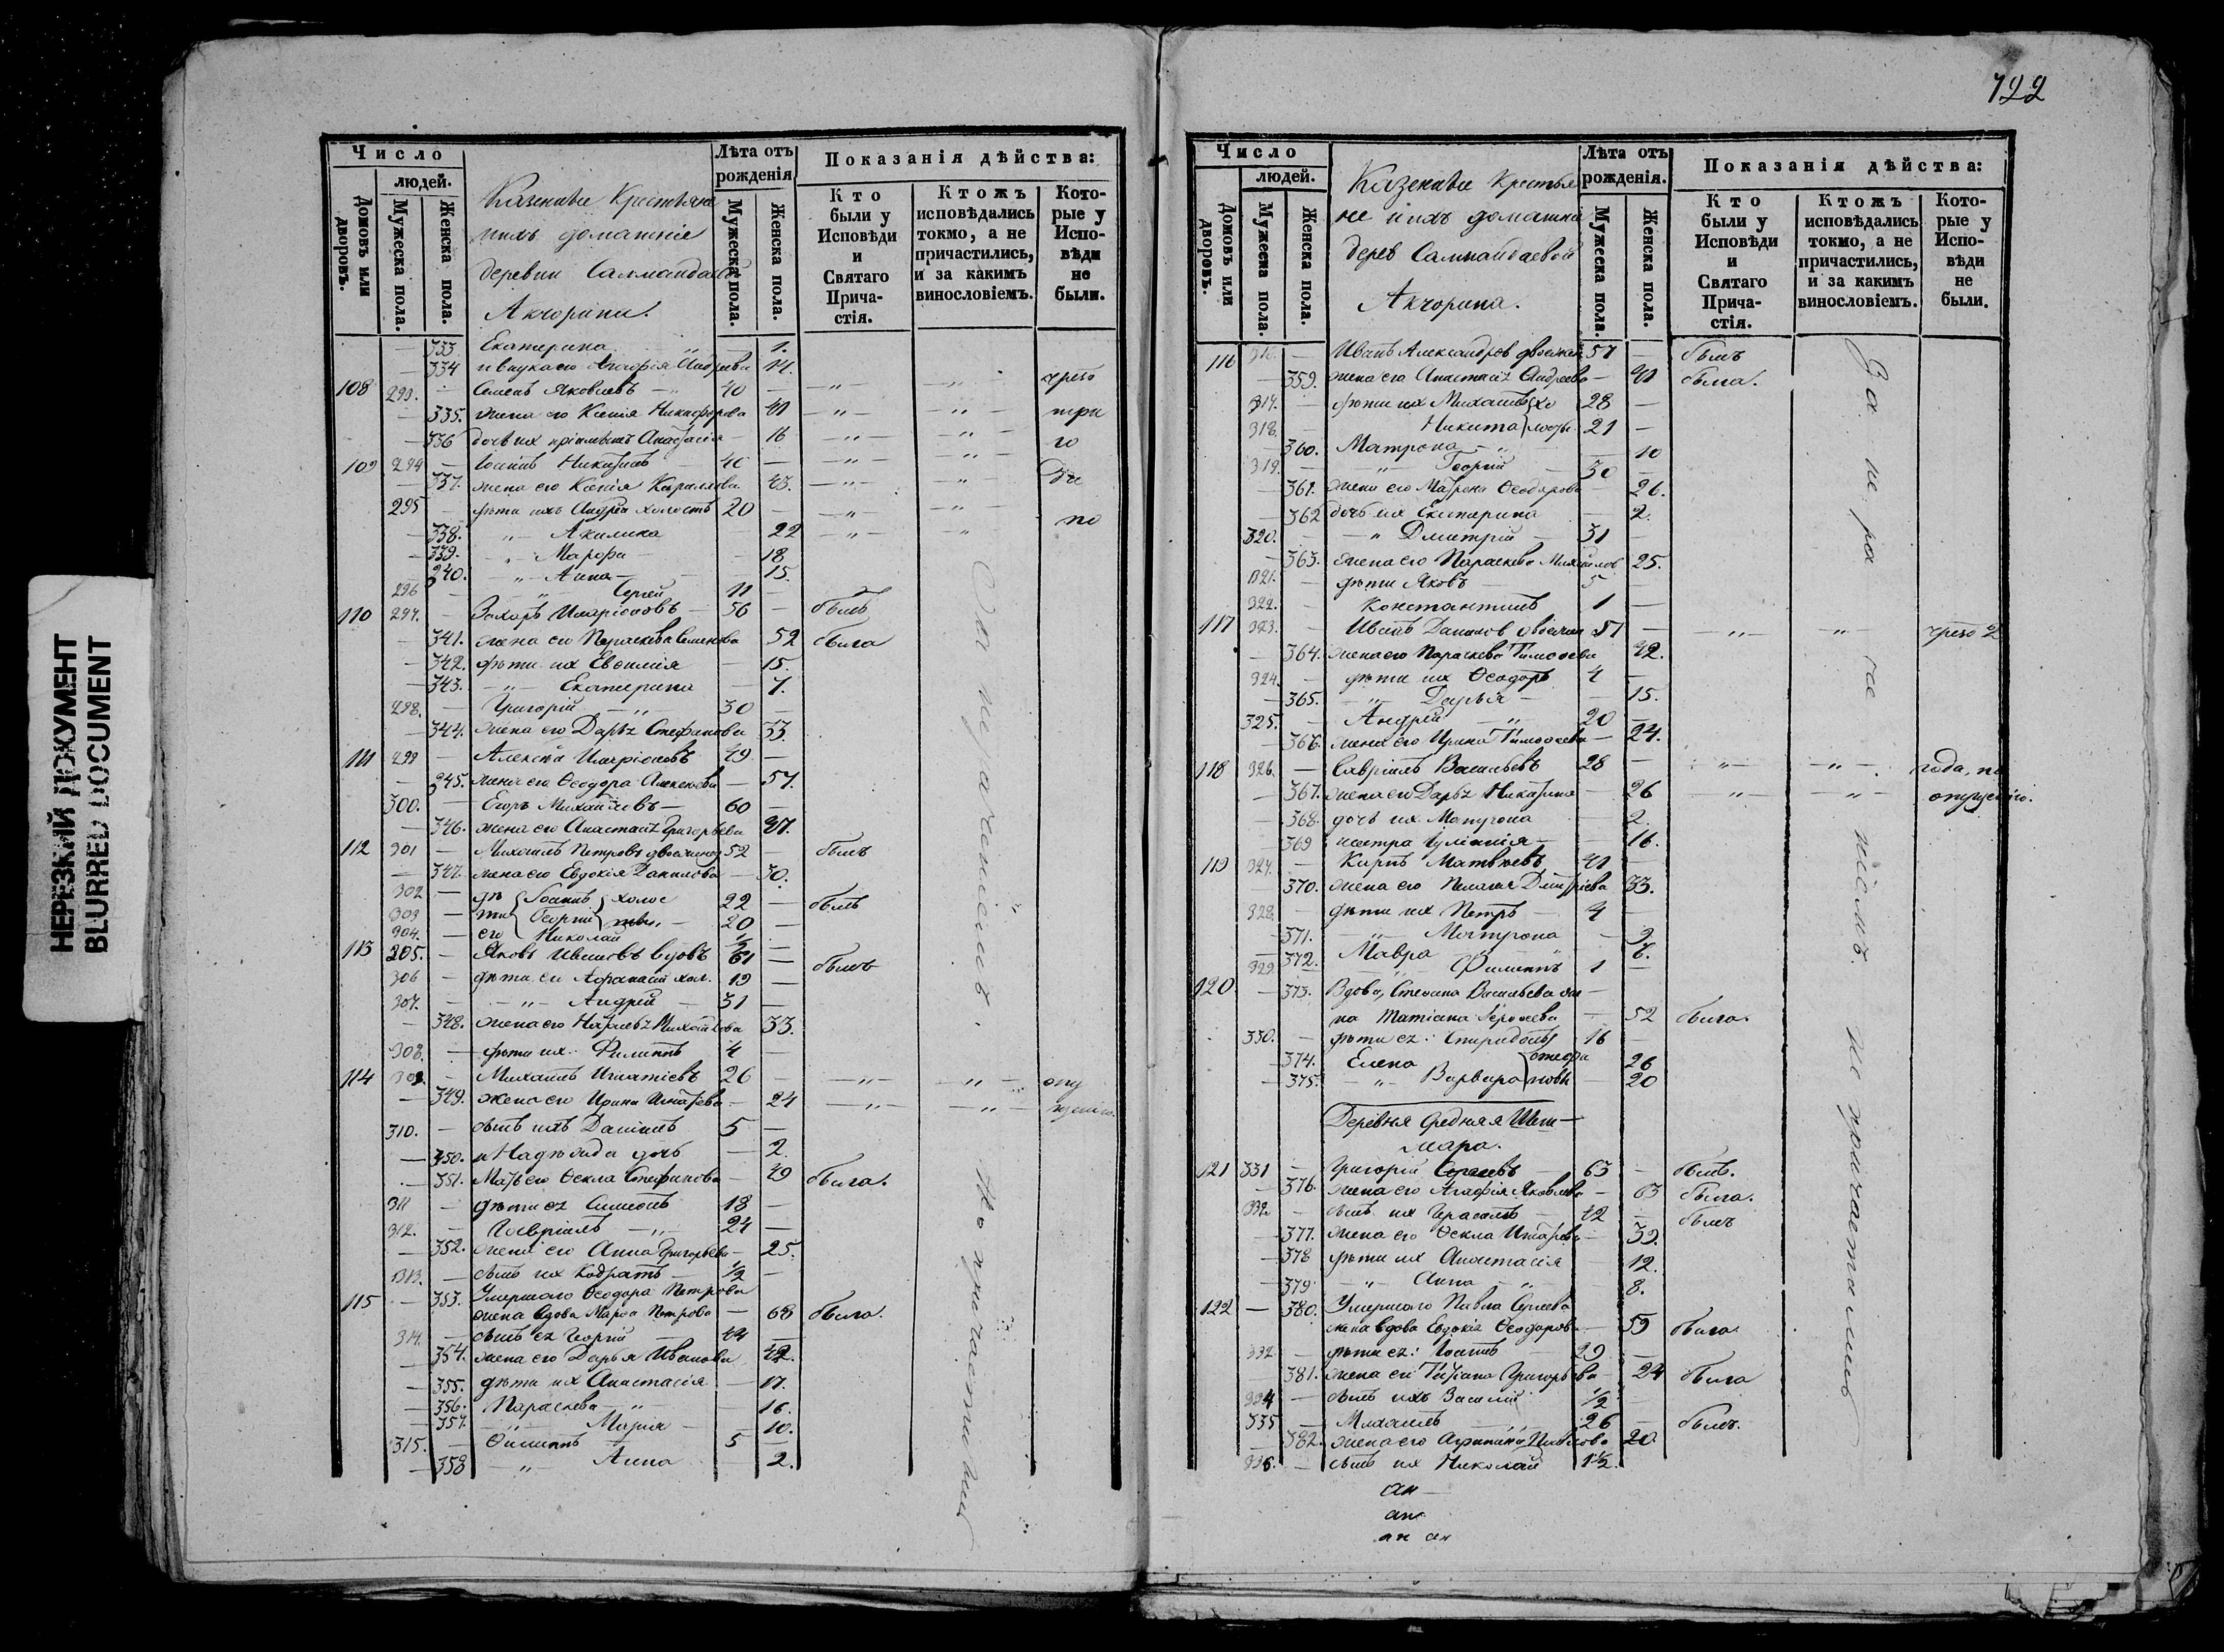 122
НЕРЕЗКИЙ ДОКУМЕНТ
BLURRED DOCUMENT
Число
людей.
Домовъ или дворовъ.
Мужеска пола.
Женска пола.
Казенные Крестьяне
ихъ домашніе
деревни
Акчорини.
Лѣта отъ рожденія
Мужеска пола.
Женска пола.
Показанія дѣйства:
Кто были у Исповѣди и Святаго Прича- стія.
Ктожъ исповѣдались токмо, а не причастились, и за какимъ винословіемъ.
Кото- рые у Испо- вѣди не были.
— 333 Екатерина — 1.
— 334 и внука его Агафія Андреева 14.
108 293. — Семенъ Яковлевъ 40 — чрезъ
— 335. жена его Ксенія Никифорова 41 — три
— 336 дочь их Анастасія — 16 го
109 294 — 40 —
— 337. жена его Ксенія Кирилова 43.
295 — дѣти ихъ Андрей холостъ 20 — по
— 338. Акилина 22
— 339. Марфа — 18
— 340. Анна — 15.
296 — Сергей 11 —
110 297. — Захаръ Иларіоновъ — 56 — былъ
— 341. жена его Параскева Семенова 52 была
— 342. дѣти их Евфимія — 15.
— 343. Екатерина — 7.
298. — Григорій 30 —
— 344. жена его Дарья Стефанова 33.
111 299 — Алексѣй Иларіоновъ 49 —
— 345. жена его Ѳеодора Алексеева — 57.
300. — Егоръ Михайловъ — 60 —
— 346. жена его Анастасія Григорьева 47.
112 301 — Михаилъ Петровъ двоежен 52 — былъ
— 347. жена его Евдокія Данилова — 30.
302 — дѣ Іоаннъ холос 22 — былъ
303 — ти Георгій тые — 20 —
304. — его Николай 1/2 —
113 305. — Яковъ Ивановъ вдовъ 61 — былъ
306 — дѣти его Афанасій хол. 19 —
307. — Андрей — 31 —
— 348. жена его Наталья Михайлова 33.
308. — дѣти их Филиппъ 4 —
114 309. — Михаилъ Игнатіевъ 26 — опу
— 349. жена его Ирина Игнатьева — 24 щенію
310. — сынъ ихъ Даніилъ 5 —
— 350. и Надежда дочь — 2.
— 351. Мать его Ѳекла Стефанова — 49 была.
311 — дѣти ея Симеонъ 18 —
312. — Гавріилъ 24 —
— 352. жена его Анна Григорьева — 25.
313. — сынъ их Кодратъ — 1/2 —
115 — 353. Умершаго Ѳеодора Петрова
жена вдова Марфа Петрова — 68 была.
314. — сынъ ея Георгій 44 —
— 354. жена его Дарья Иванова 42.
— 355. дѣти их Анастасія — 17.
— 356. Параскева — 16.
— 357. Марія — 10.
315. — Филиппъ 5 —
— 358 Анна 2.
За неявченіемъ не причастились
Число
людей.
Домовъ или дворовъ.
Мужеска пола.
Женска пола.
Казенные Крестья
не и ихъ домашніе
дерев
Акчорина.
Лѣта отъ рожденія.
Мужеска пола.
Женска пола.
Показанія дѣйства:
Кто были у Исповѣди и Святаго Прича- стія.
Ктожъ исповѣдались токмо, а не причастились, и за какимъ винословіемъ.
Кото- рые у Испо- вѣди не были.
116 316. — Иванъ Александровъ двоежен 57 — былъ
— 359. жена его Анастасія Андреева — 41 была.
317. — дѣти их Михаилъ хо 28 —
318. — Никита лосты 21 —
— 360. Матрона — 10
319. — Георгій 30 —
— 361. жена его Матрона Ѳеодорова — 26.
— 362 дочь их Екатерина — 2.
320. — Дмитрій — 31 —
— 363. жена его Параскева Михайлов 25.
321. — дѣти Яковъ — 5
322. — Константинъ 1 —
117 323. — Иванъ Даниловъ двоежен 51 — чрезъ 2
— 364. жена его Параскева Тимофеева 42.
324. — дѣти их Ѳеодоръ 4 —
— 365. Дарья — 15.
325. — Андрей 20 —
— 366. жена его Ирина Тимофеева — 24.
118 326. — Гавріилъ Васильевъ 28 — года, по
— 367. жена его Дарья 26 опущенію.
— 368. дочь их Матрона — 2.
— 369 сестра Іуліанія — 16.
119 327. — Кирилъ Матвѣевъ 41 —
— 370. жена его Пелагея Дмитріева 33.
328. — дѣти их Петръ 4 —
— 371. Матрона — 9
— 372. Мавра 6.
329. — Филиппъ 1 —
120 — 373. Вдова, Степана Васильева же
на Татіана Ерофеева — 52 была.
330. — дѣти ея: Спиридонъ 16 —
— 374. Елена 26
— 375. Варвара 20
Деревня Средняя Шем—
мара.
121 331 — Григорій Сергеевъ — 63 — былъ.
— 376. жена его Агафія Яковлева — 63 была.
332. — сынъ их Герасимъ 42 — былъ
— 377. жена его Ѳекла Игнатьева — 39.
— 378 дѣти их Анастасія 12.
— 379 Анна 8.
122 — 380. Умершаго Павла Сергеева
жена вдова Евдокія Ѳеодорова — 59 была.
332 — дѣти ея: Іоаннъ 29 —
— 381. жена его Татіана Григорьева — 24 была
334 — сынъ ихъ Василій 1/2 —
335 — Михаилъ 26 — былъ.
— 382. жена его Агрипина Павлова 20
336. — сынъ их Николай 1 1/2.
не причастились